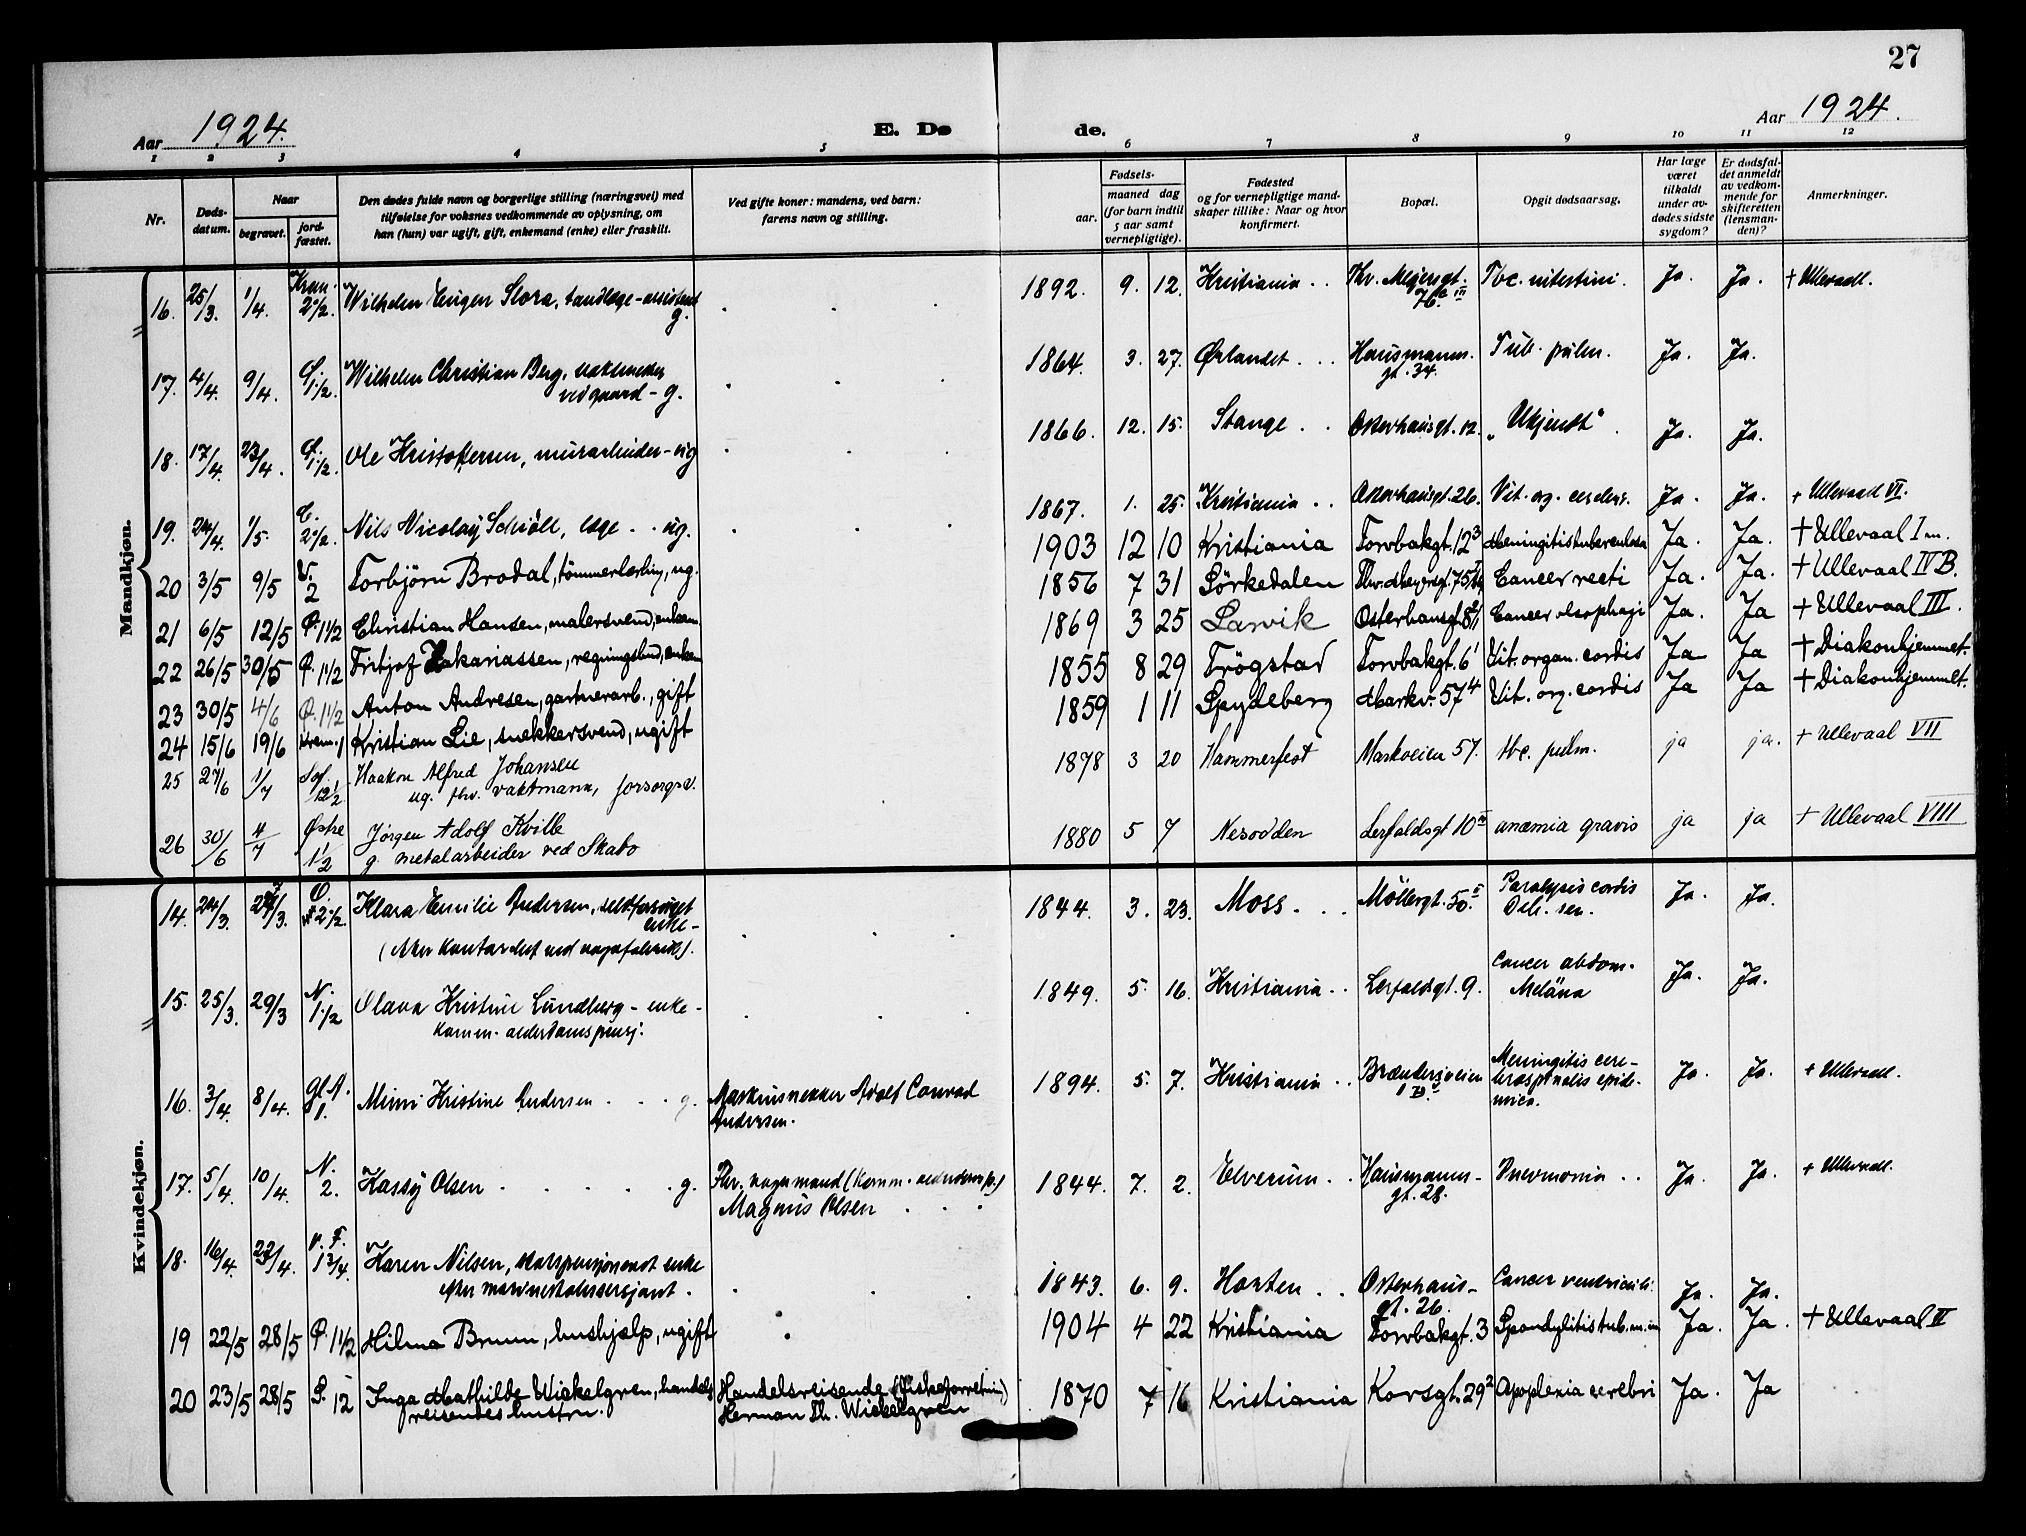 27
Aar 1924.
E. Dø
de.
Aar 1924.
1 2 3 4 5 6 7 8 9 10 11 12
Nr.
Døds-datum.
Naar
begravet.
jord-fæstet.
Den dødes fulde navn og borgerlige stilling (næringsvei) med
tilføielse for voksnes vedkommende av oplysning, om
han (hun) var ugift, gift, enkemand (enke) eller fraskilt.
Ved gifte koner: mandens, ved barn:
farens navn og stilling.
Fødsels-
aar.
maaned dag
(for barn indtil
5 aar samt
vernepligtige).
Fødested
og for vernepligtige mand-
skaper tillike: Naar og hvor
konfirmert.
Bopæl.
Opgit dødsaarsag.
Har læge
været
tilkaldt
under av-
dødes sidste
sygdom?
Er dødsfal-
det anmeldt
av vedkom-
mende for
skifteretten
(lensman-
den)?
Anmerkninger.
Mandkjøn.
16. 25/3. 1/4. Krem. 2 1/2. Wilhelm Eugen Stora, tandlæge-assistent g. 1892. 9. 12. Kristiania Thv. Meyersgt. Tbc. intestini. Ja. Ja. + Ullevaal.
17. 4/4. 9/4. 1 1/2. Wilhelm Christian Berg,
vedgaard - g. 1864. 3. 27. Ørlandet Hausmanns-
gt. 34. Tub. pulm. Ja. Ja.
18. 17/4. 23/4. 1 1/2. Ole Kristoffersen, murarbeider - ug 1866. 12. 15. Stange Osterhausgt. 12. "Ukjendt" Ja. Ja.
19. 24/4. 1/5. 2 1/2. Nils Nicolay Schiöll, læge - ug. 1867. 1. 25. Kristiania Osterhausgt. 26. Vit. org. cordis. Ja. Ja. + Ullevaal VI.
20 3/5 9/5 V. 2 Torbjörn Brodal, tömmerlærling, ug. 1903 12 10 Kristiania Torvbakgt. 12 3 Meningitis tuberculosa Ja. Ja. + Ullevaal I m.
21 6/5 12/5 Ø. 1 1/2 Christian Hansen, malersvend, enkem. 1856 7 31 Sörkedalen Thv. Meyersgt. 75 Cancer recti Ja. Ja. + Ullevaal IV B.
22 26/5 30/5 Ø. 1 1/2 Fritjof Zakariassen, regningsbud, enkem 1869 3 25 Larvik Osterhausgt. 8 Cancer oesophagi Ja. Ja + Ullevaal III.
23 30/5 4/6 Ø. 1 1/2 Anton Andresen, gartnerarb., gift 1855 8 29 Trögstad Torvbakgt. 6 1 Vit. organ. cordis Ja Ja + Diakonhjemmet.
24 15/6 19/6 Krem. 1 Kristian Lie, snekkersvend, ugift 1859 1 11 Spydeberg Markv. 57 4 Vit. org. cordis Ja Ja + Diakonhjemmet.
25 27/6 1/7 Sof. 12 1/2 Haakon Alfred Johansen
ug. fhv. vaktmann, forsorgsv. 1878 3 20 Hammerfest Markveien 57. tbc. pulm. ja ja. + Ullevaal VII
26 30/6 4/7 Østre 1 1/2 Jørgen Adolf Kville
g. metalarbeider ved Skabo 1880 5 7 Nesodden Lerfaldsgt 10 anæmia gravis ja ja + Ullevaal VIII
Kvindekjøn.
14. 24/3. 27/3. 2 1/2. Klara Emilie Andersen, selvforsörget
enke -
(efter kontorchef ved vognfabrik). 1844. 3. 23. Moss. Möllergt. 50. II Paralysis cordis
Deb. sen. Ja. Ja.
15. 25/3. 29/3 N. 1 1/2 Olava Kristine Lundberg - enke -
komm. alderdomspensj. 1849. 5. 16. Kristiania Lerfaldsgt. 9. Cancer abdom.
Meläna Ja. Ja.
16. 3/4. 8/4. Gl. A. 1. Mimi Kristine Andersen g. Maskinsnekker Adolf Conrad
Andersen. 1894. 5. 7. Kristiania Brænderiveien Meningitis cere-
brospinalis epide-
mica. Ja. Ja. + Ullevaal.
17. 5/4. 10/4. N. 2. Kassy Olsen g. Fhv. vognmand (komm. alderdomsp.)
Magnus Olsen 1844. 7. 2. Elverum Hausmanns-
gt. 28. Pneumonia Ja. Ja. + Ullevaal.
18. 16/4. 22/4. V. F. 1 3/4. Karen Nilsen, statspensjonert enke
efter 1843. 6. 9. Horten Osterhaus-
gt. 26. Cancer ventriculi. Ja. Ja.
19 22/5 28/5 Ø. 1 1/2 Hilma Bruun, hushjælp, ugift 1904 4 22 Kristiania Torvbakgt. 3 Spondylitis tub. Ja. Ja. + Ullevaal II
20 23/5 28/5 P. 12 Inga Mathilde Wickelgren, handels
reisendes hustru. Handelsreisende (Fiskeforretning)
Herman Th. Wickelgren 1870 7 16 Kristiania Korsgt. 29 2 Apoplexia cerebri Ja. Ja